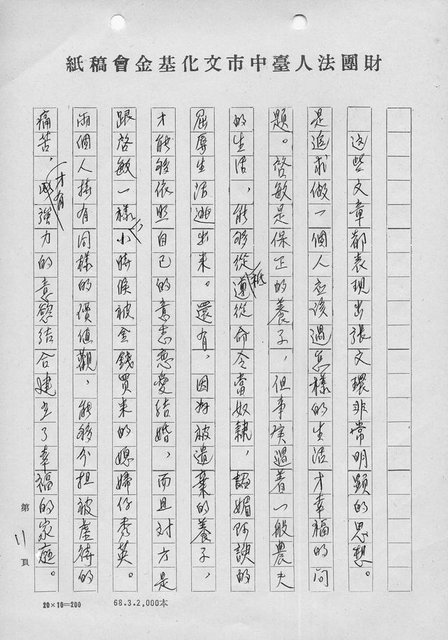 財團法人臺中市文化基金會稿紙
這些文章都表現出張文環非常明顯的思想。
是追求做一個人應該過怎樣的生活才幸福的問
題。啓敏是保正的養子，但事実過着一般農夫
的生活，能夠從祇遵從命令當奴隸，諂媚阿諛的
屈辱生活逃出來。還有，因為被遺棄的養子，
才能夠依照自己的意志戀愛結婚，而且对方是
跟啓敏一樣，小時候被金錢買來的媳婦仔秀英。
兩個人持有同樣的價值觀，能夠分担被虐待的
痛苦，才有強力的意慾結合建立了幸福的家庭。
第11頁
20×10=200 68.3.2,000本